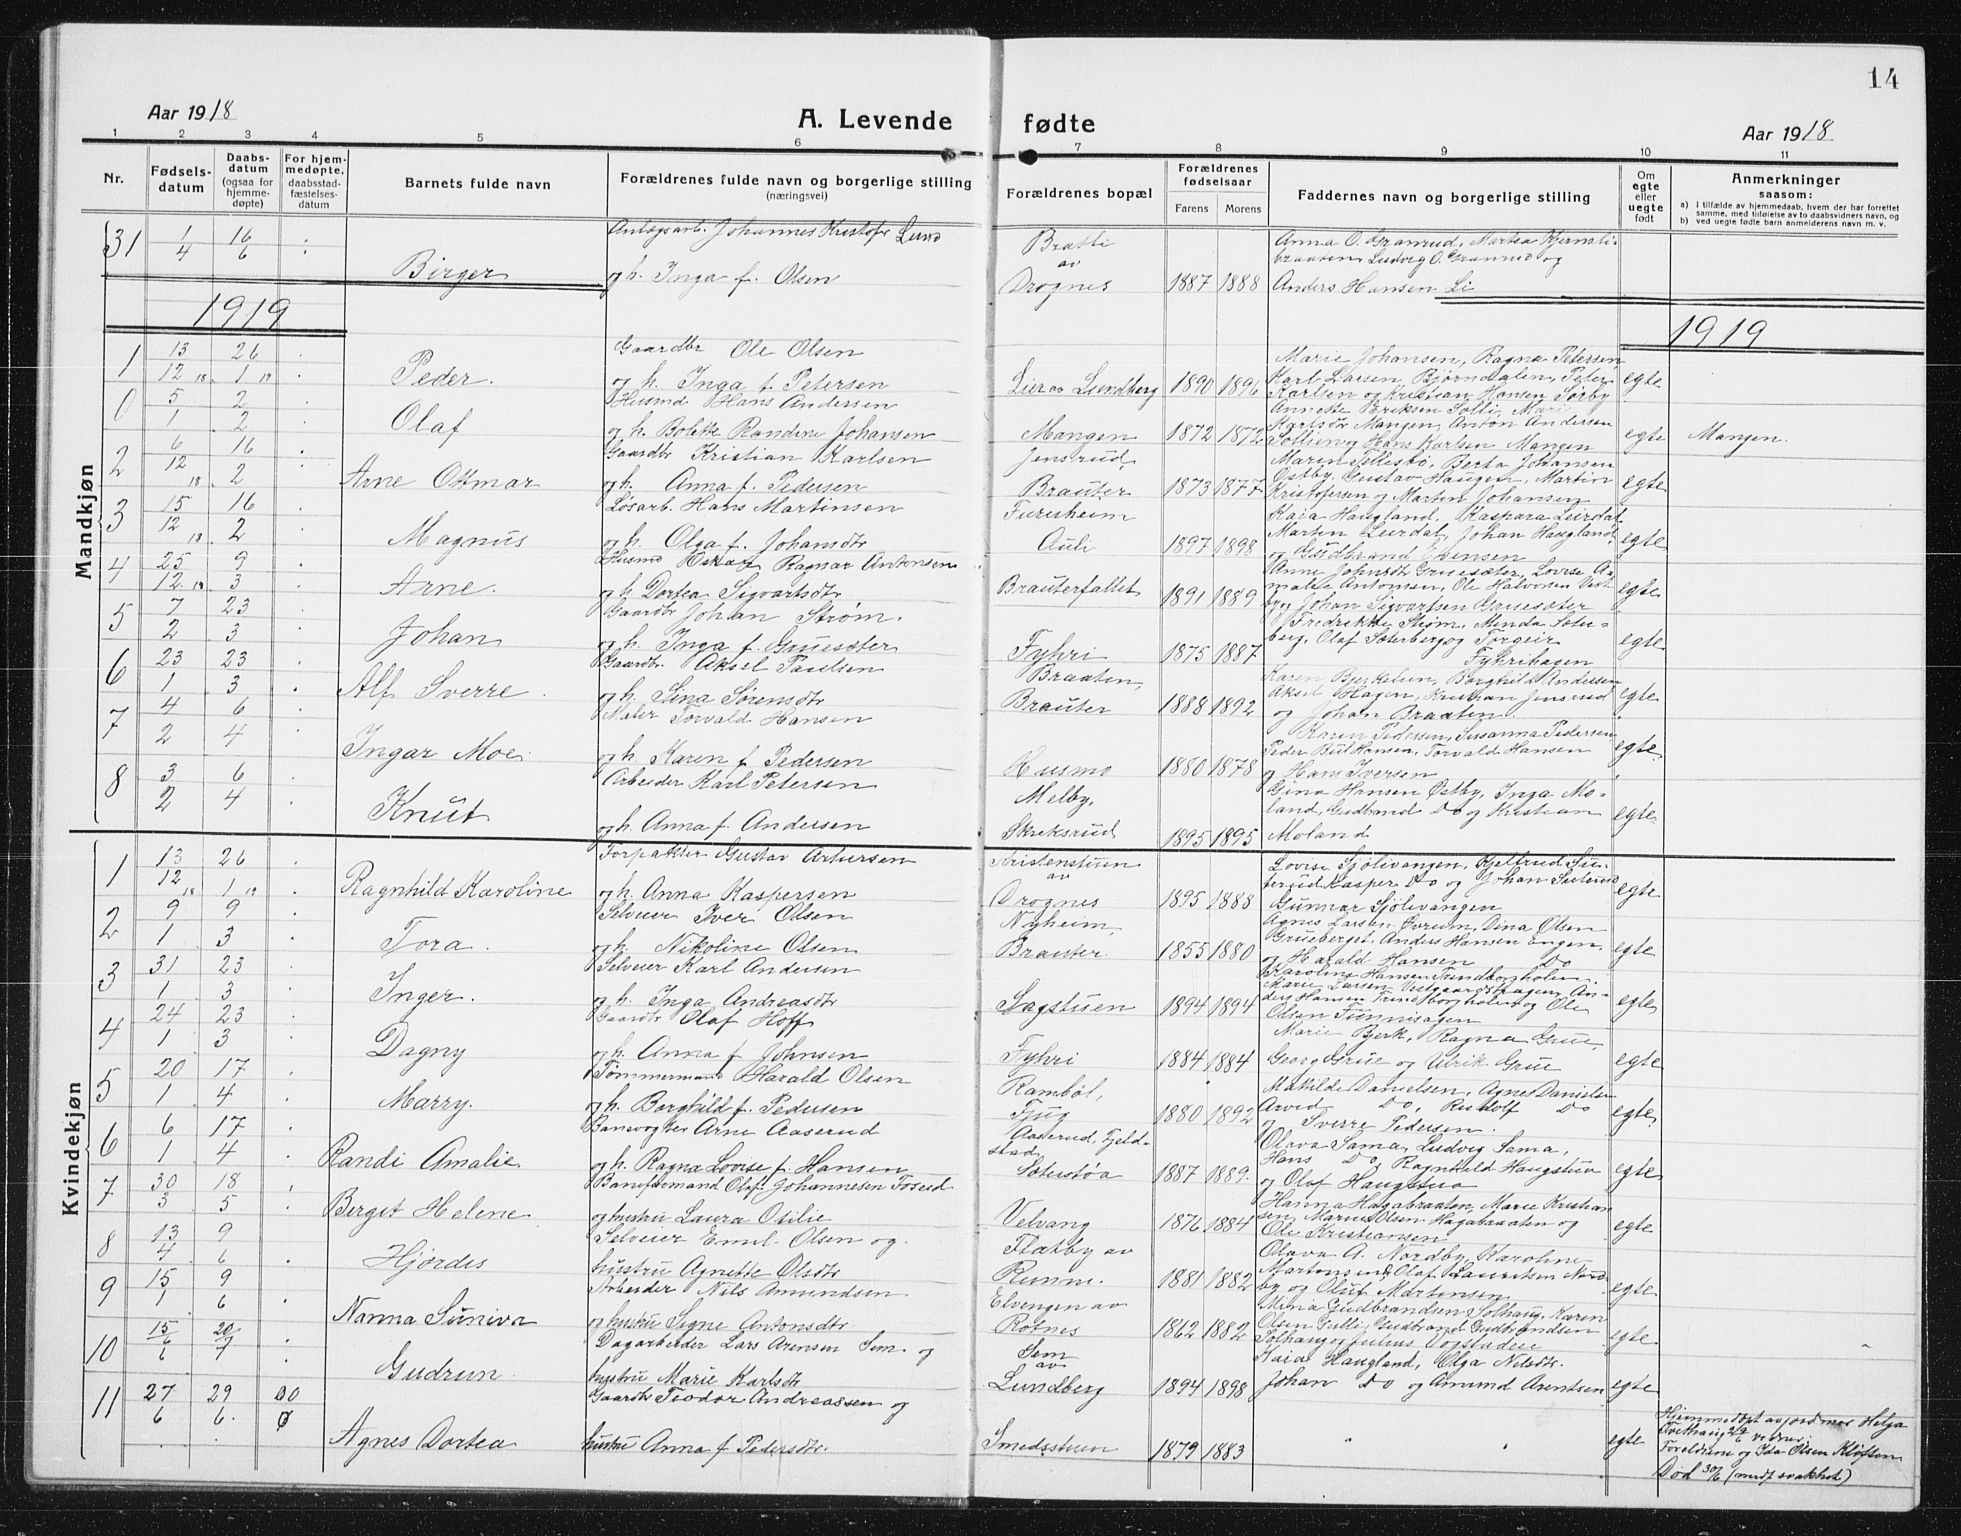 14
Aar 1918
A. Levende fødte
Aar 1918
1 2 3 4 5 6 7 8 9 10 11
Nr.
Fødsels-
datum
Daabs-
datum
(ogsaa for
hjemme-
døpte)
For hjem-
medøpte.
daabsstad-
fæstelses-
datum
Barnets fulde navn
Forældrenes fulde navn og borgerlige stilling
(næringsvei)
Forældrenes bopæl
Forældrenes
fødselsaar
Farens Morens
Faddernes navn og borgerlige stilling
Om
egte
eller
uegte
født
Anmerkninger
saasom:
a) i tilfælde av hjemmedaab, hvem der har forrettet
samme, med tilføielse av to daabsvidners navn, og
b) ved uegte født barn anmelderens navn m. v.
Mandkjøn
31 1/4 16/6 Birger
Anlægsarb. Johannes Kristofer Lund
og h. Inga f. Olsen
Bratli
av
Drognes 1887 1888
Anna O. Granrud, Martea Kjernsli-
braaten, Ludvig O. Granrud og
Anders Hansen Li
1919
1919
1 13/12 18 26/1 19 Peder.
Gaardbr Ole Olsen
og h. Inga f. Petersen
Lier av Lundberg 1890 1896
Marie Johansen, Ragna Petersen,
Karl Larsen Bjørndalen, Peter
Karlsen og Kristian Hansen Sørby
egte
0 5/1 2/2 Olaf
Husmd Hans Andersen
og h. Bolette Randine Johansen
Mangen 1872 1872
Annette Eriksen Solli, Marie
Karlsdr Mangen, Anton Andersen
Sollien og Hans Karlsen Mangen
egte Mangen.
2 6/12 18 16/2 Arne Ottmar
Gaardbr Kristian Karlsen
og h. Anna f. Pedersen
Jensrud,
Brauter 1873 1877
Maren Tellesbø, Berta Johansen
Østby, Gustav Haugen, Martin
Kristofersen og Martin Johansen
egte
3 15/12 18 16/2 Magnus
Løsarb. Hans Martinsen
og h. Olga f. Johansdtr
Furusheim
Auli 1897 1898
Kaia Haugland, Kaspara Leirdal,
Marten Leirdal, Johan Haugland
og Gudbrand Evensen
egte
4 25/12 18 9/3 Arne.
Husmd Oskar Ragnar Antonsen
og h. Dortea Sigvartsdtr
Brauterfallet 1891 1889
Anne Johnsdtr Gruesæter, Lovise A-
malie Antonsen, Ole Halvorsen Vest-
by og Johan Sigvartsen Gruesæter
egte
5 7/2 23/3 Johan
Gaardbr Johan Strøm.
og h. Inga f. Gruesæter
Fyhri 1875 1887
Fredrikke Strøm, Minda Soter-
berg, Olaf Soterberg og Torgeir
Fyhrihagen
egte
6 23/1 23/3 Alf Sverre
Gaardbr. Aksel Paulsen
og h. Lina Sørensdtr
Braaten,
Brauter 1888 1892
Karen Bjerkelun, Borghild Andersen
Aksel Hagen, Kristian Jensrud
og Johan Braaten.
egte
7 4/2 6/4 Ingar Moe.
Maler Torvald Hansen
og h. Karen f. Pedersen
Husmo 1880 1878
Karen Pedersen, Susanna Pedersen
Peder Bull Hansen, Torvald Hansen
og Hans Iversen
egte
8 3/2 6/4 Knut
Arbeider Karl Petersen
og h. Anna f. Andersen
Melby,
Skreksrud 1895 1895
Gina Hansen Østby, Inga Mo-
land, Gudbrand Do og Kristian
Moland
egte.
Kvindekjøn
1 13/12 18 26/1 19 Ragnhild Karoline
Forpakter Gustav Arthursen
og h. Anna Kaspersen
Kristenstuen
av
Drognes 1895 1888
Lovise Sjølivangen, Kjellrud Sæ-
terud, Kasper Do og Johan Sæterud
Gunnar Sjølivangen
egte
2 9/1 9/3 Tora.
Selveier Iver Olsen
og h. Nikoline Olsen
Nyheim,
Brauter. 1855 1880
Agnes Larsen Øvrum, Dina Olsen
Grueberget, Anders Hansen Engen,
og Harald Hansen Do
egte
3 31/1 23/3 Inger.
Selveier Karl Andersen
og h. Inga Andreasdtr
Sagstuen 1894 1894
Karoline Hansen Trindborgholen,
Marie Larsen Vestgaardshagen, An-
ders Hansen Trindborgholen og Ole
Olsen Funnisagen
egte
4 24/1 23/3 Dagny
Gaardbr Olaf Hoff
og h. Anna f. Johnsen
Fyhri 1884 1884
Marie Bjerk, Ragna Grue,
Georg Grue og Ulrik Grue
egte
5 20/1 17/4 Marry.
Tømmermand Harald Olsen
og h. Borghild f. Pedersen
Rambøl,
Fjug 1880 1892
Matilde Danielsen, Agnes Danielsen
Arvid Do, Rudolf Do
og Sverre Pedersen.
egte
6 6/1 17/4 Randi Amalie
Banevogter Arne Aaserud
og h. Ragna Lovise f. Hansen
Aaserud, Fjeld-
stad,
Soterstøa 1887 1889.
Olava Sama, Ludvig Sama,
Hans Do, Ragnhild Haugstua
og Olaf Haugstua
egte
7 30/3 18/5 Berget Helene
Baneformand Olaf Johannesen Foserud
og hustru Laura Otilie
Velvang 1876 1884
Hanna Hagabraaten, Marie Kristian-
sen, Marius Olsen Hagabraaten og
Ole Kristiansen
egte
8 13/4 9/6 Hjørdis
Selveier Emil Olsen og
hustru Agnette Olsdtr
Flatby av
Runni. 1881 1882
Olava A. Nordby, Karoline
Martensen, Olaf Lauritsen Nord-
by og Oluf Martensen
egte
9 15/1 9/6 Nanna Suniva
Arbeider Nils Amundsen
og hustru Signe Antonsdtr
Elvengen av
Rotnes 1862 1882
Mina Gudbrandsen Solhaug, Karen
Olsen Gulli, Gudbrand Gudbrandsen
Solhaug og Julius Vogstadeie
egte
10 15/6 20/7 Gudrun
Dagarbeider Lars Arensen Sem. og
hustru Marie Karlsdtr
Sem
av
Lundberg 1894 1898
Kaia Haugland, Olga Nilsdtr.
Johan Do og Amund Arentsen
egte
11 27/6 29/6. 00/0 Agnes Dortea
Gaardbr Teodor Andreassen og
hustru Anna f Pedersdtr.
Smedsstuen 1879 1883
egte
Hjemmedøpt av jordmor Helga
Tvethaug 29/6 vidner.
Forældrene og Ida Olsen Kløften
Død 30/6 (medf. svakhet)